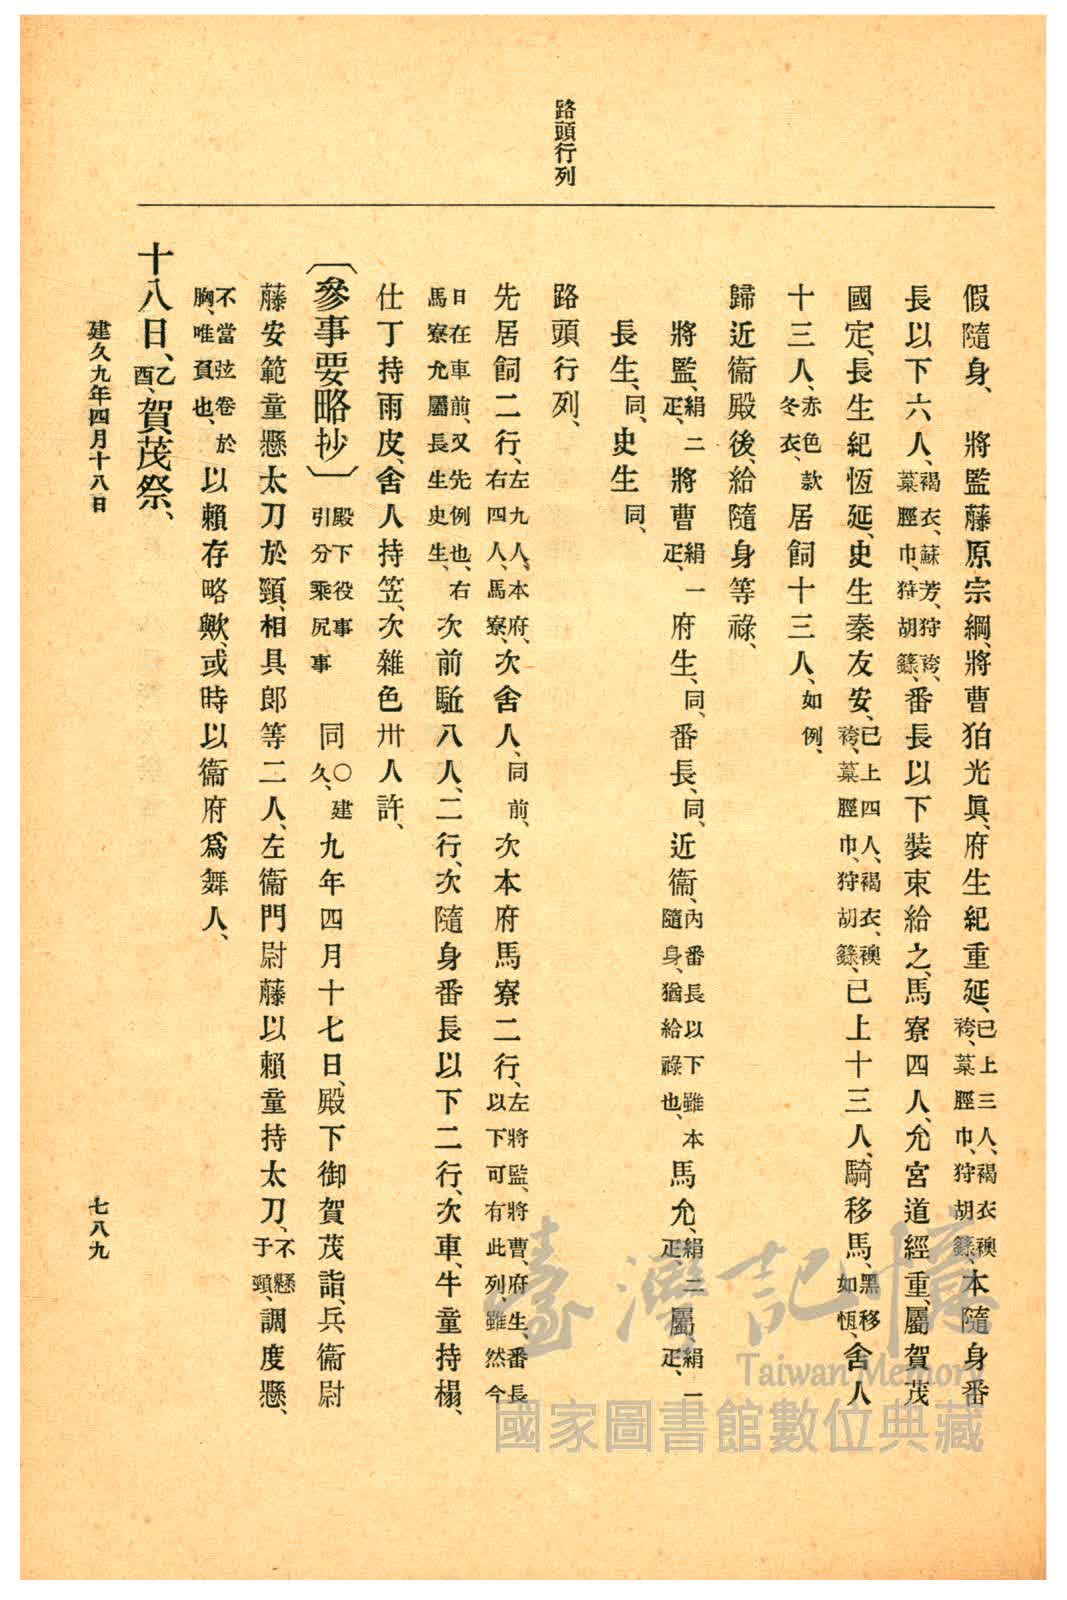 路頭行列
假隨身、　將監藤原宗綱、將曹狛光眞、府生紀重延、已上三人、褐衣襖袴、菒脛巾、狩胡籙、本隨身番
長以下六人、褐衣、蘇芳狩袴、菒脛巾、狩胡籙、番長以下裝束給之、馬寮四人、允宮道經重、屬賀茂
國定、長生紀恆延、史生秦友安、已上四人、褐衣、襖袴、菒脛巾、狩胡籙、已上十三人、騎移馬、黑移如恆、舍人
十三人、赤色款冬衣、居飼十三人、如例、
歸近衞殿後、給隨身等祿、
將監、絹二疋、將曹絹一疋、府生、同、番長、同、近衞、內番長以下雖本隨身、猶給祿也、馬允、絹二疋、屬、絹一疋、
長生、同、史生同、
路頭行列、
先居飼二行、左九人、本府、右四人、馬寮、次舍人、同前、次本府馬寮二行、左將監、將曹、府生番長以下可有此列、雖然今
日在車前、又先例也、右馬寮允屬長生史生、次前駈八人、二行、次隨身番長以下二行、次車、牛童持榻、
仕丁持雨皮、舍人持笠、次雜色卅人許、
〔參事要略抄〕殿下役事引分乘尻事　同〇建久、九年四月十七日、殿下御賀茂詣、兵衞尉
藤安範童懸太刀於頸、相具郎等二人、左衞門尉藤以賴童持太刀、不懸于頸、調度懸、
不當弦卷於胸、唯頁也、以賴存略歟、或時以衞府爲舞人、
十八日、乙酉、賀茂祭、
建久九年四月十八日
七八九
臺灣記憶
Taiwan Memory
國家圖書館數位典藏